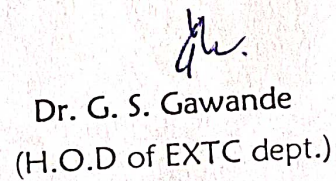 Dr. G. S. Gawande
(H.O.D of EXTC dept.)